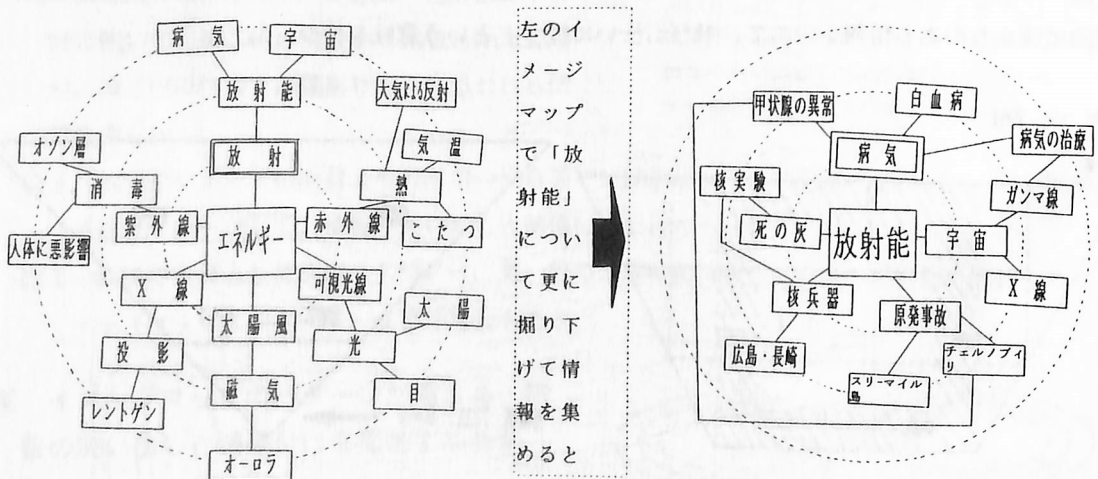 病気
宇宙
放射能
大気による反射
放射
気温
オゾン層
熱
消毒
紫外線
エネルギー
赤外線
こたつ
人体に悪影響
X線
可視光線
太陽
太陽風
投影
光
磁気
目
レントゲン
オーロラ
左のイ
メージ
マップ
で「放
射能」
につい
て更に
掘り下
げて情
報を集
めると
甲状腺の異常
白血病
病気
病気の治療
核実験
ガンマ線
死の灰
放射能
宇宙
X線
核兵器
原発事故
広島・長崎
チェルノブイ
リ
スリーマイル
島